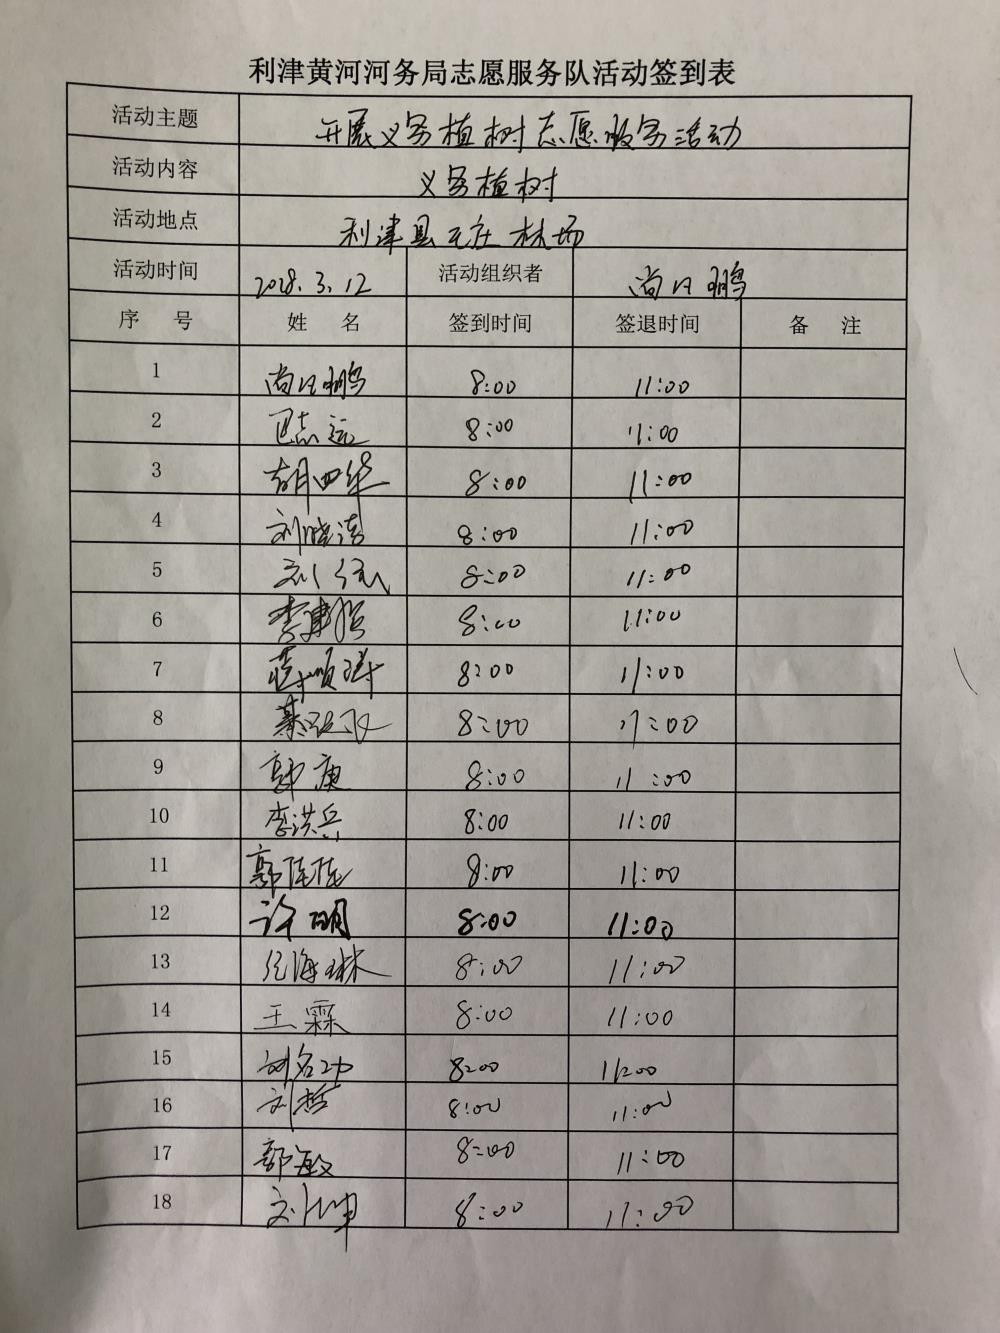 利津黄河河务局志愿服务队活动签到表
活动主题 开展义务植树志愿服务活动
活动内容 义务植树
活动地点 利津县王庄林场
活动时间 2028.3.12 活动组织者 尚 鹏
序号 姓名 签到时间 签退时间 备注
1 尚 鹏 8:00 11:00
2 志远 8:00 11:00
3 胡四华 8:00 11:00
4 刘晓涛 8:00 11:00
5 刘 8:00 11:00
6 李建 8:00 11:00
7 薛顺祥 8:00 11:00
8 綦 8:00 11:00
9 郭庚 8:00 11:00
10 李洪兵 8:00 11:00
11 郭佳佳 8:00 11:00
12 许明 8:00 11:00
13 纪海琳 8:00 11:00
14 王霖 8:00 11:00
15 刘名功 8:00 11:00
16 刘哲 8:00 11:00
17 郭敏 8:00 11:00
18 刘坤 8:00 11:00